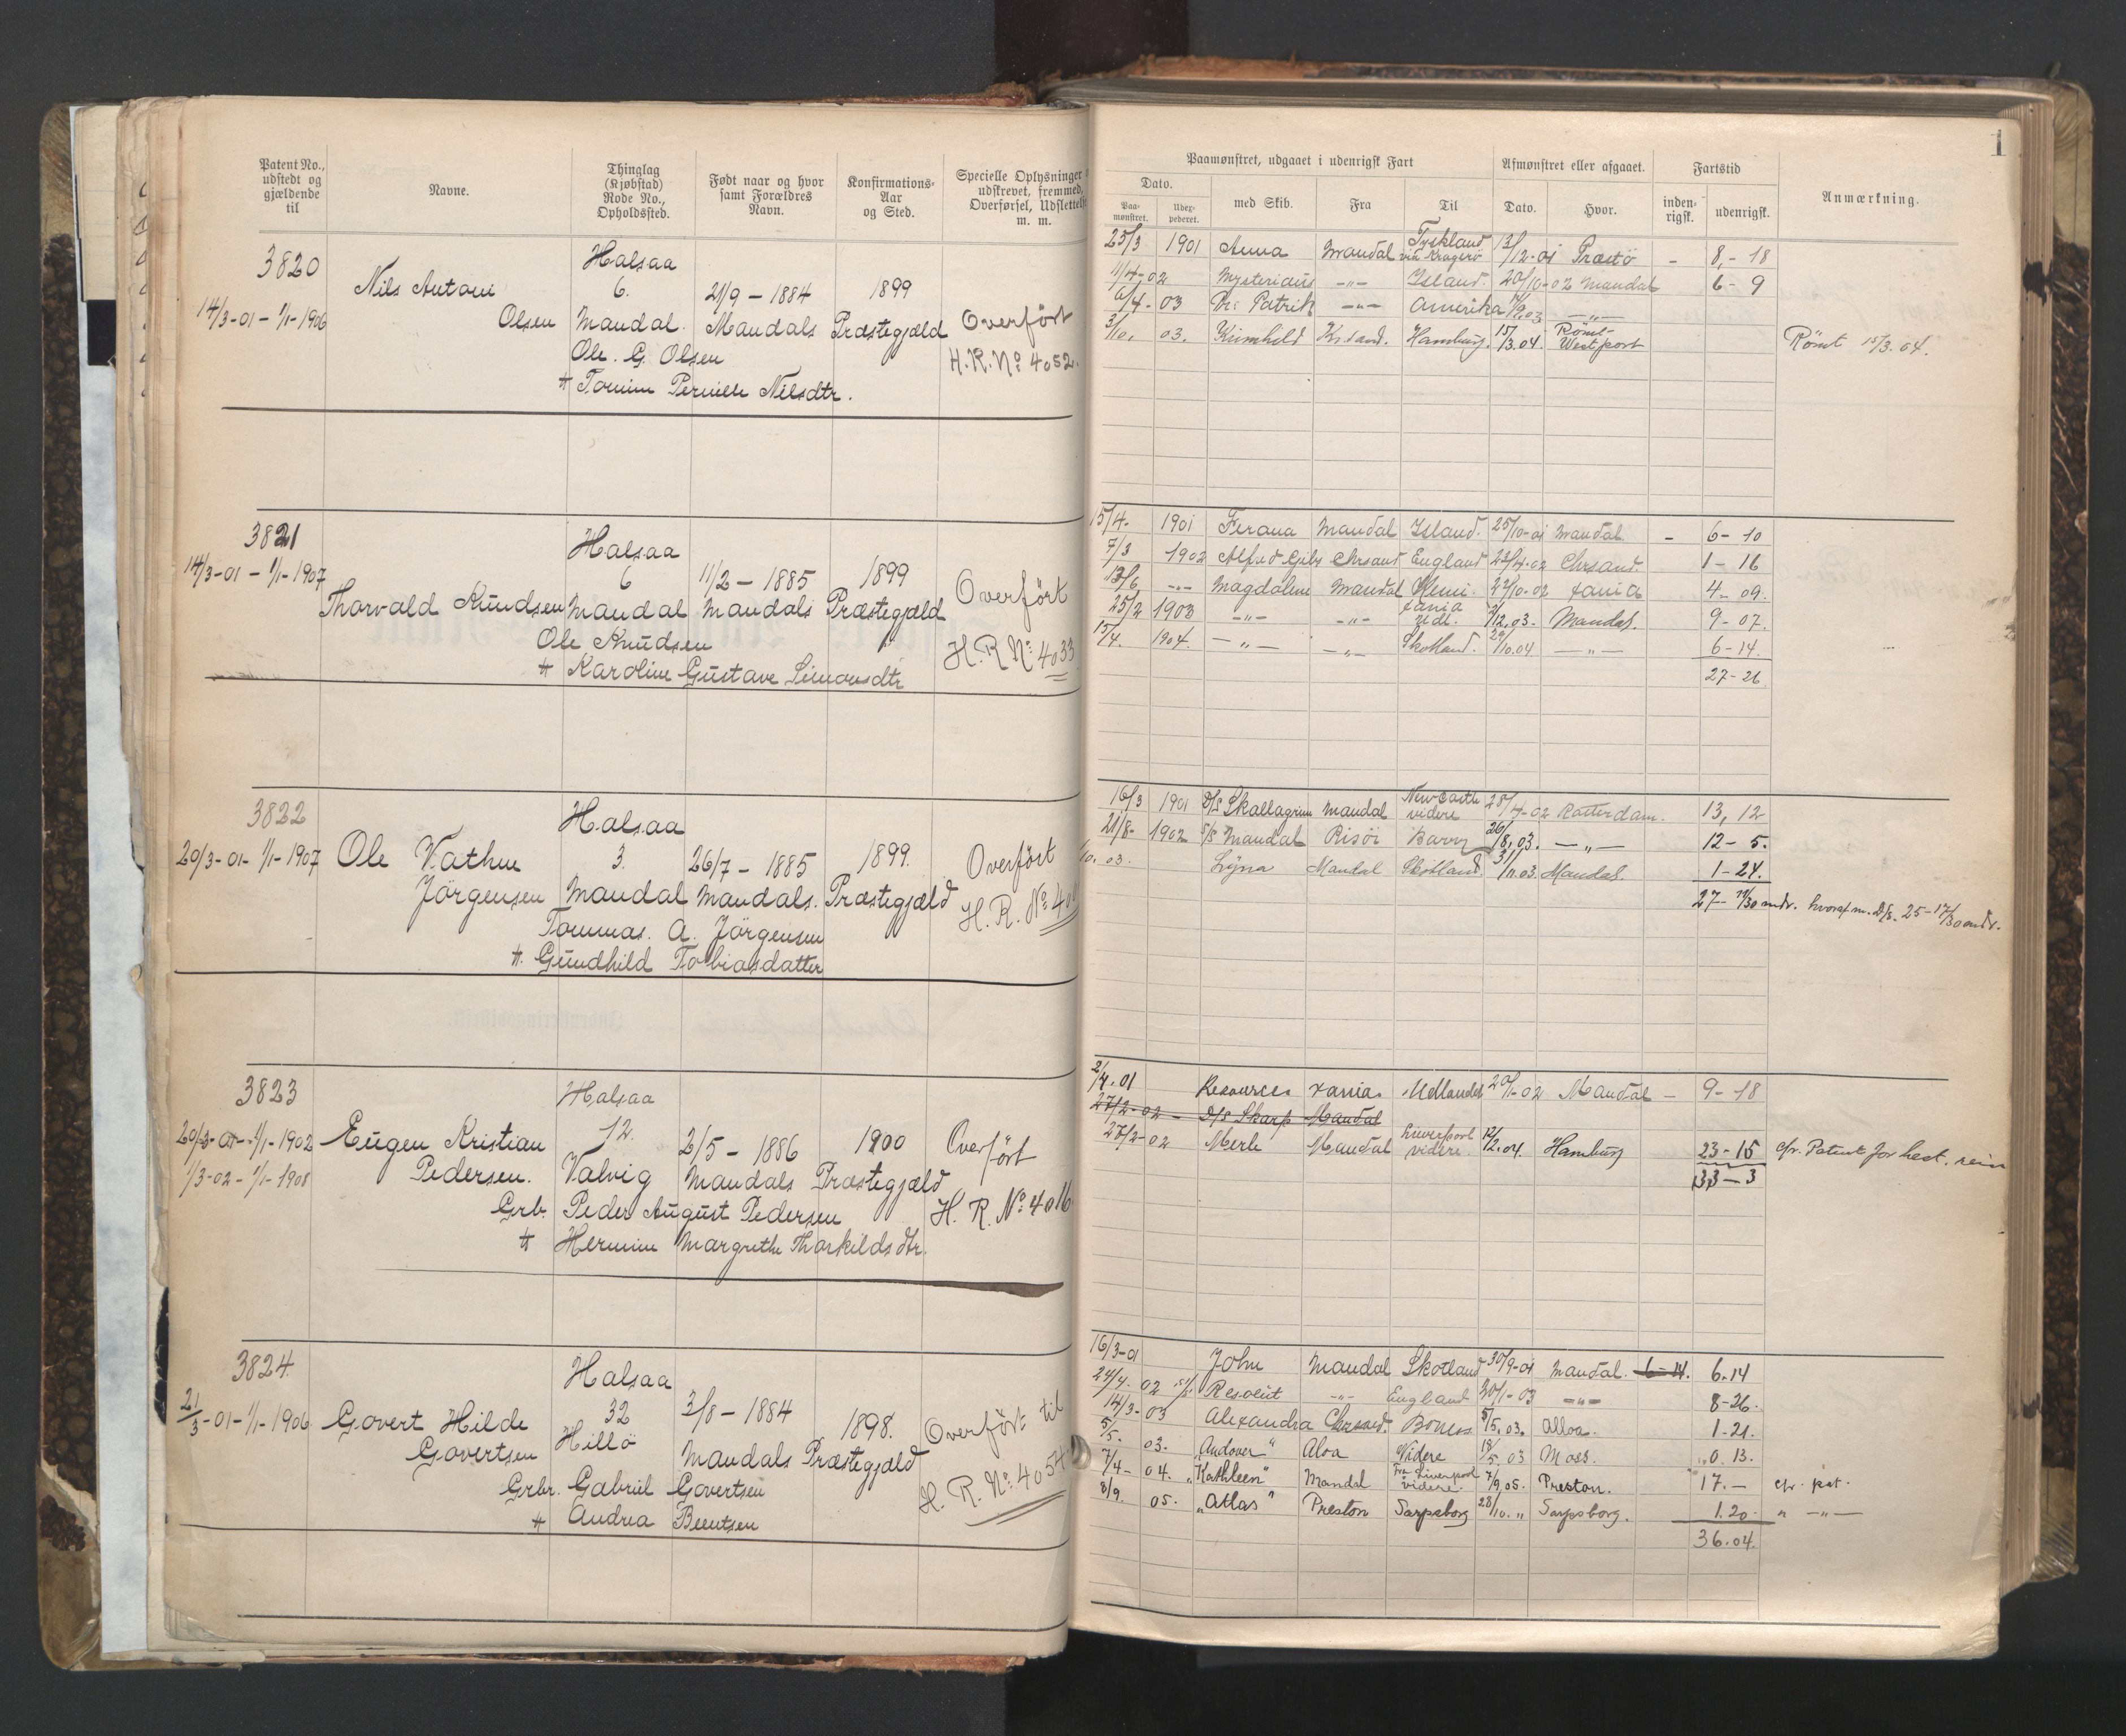 1
Patent No., udstedt og gjældende til
Navne.
Thinglag (Kjøbstad) Rode No., Opholdssted.
Født naar og hvor samt Forældres Navn.
Konfirmations-Aar og Sted.
Specielle Oplysninger
udskrevet, fremmed,
Overførsel, Udslettelse
m. m.
Paamønstret, udgaaet i udenrigsk Fart
Afmønstret eller afgaaet.
Fartstid
Anmærkning.
Dato.
Paa-mønstret.
med Skib.
Fra
Til
Dato.
Hvor.
inden-rigsk.
udenrigsk.
3820
Halsaa
Nils Antoni
6.
21/9 - 1884
1899
14/3-01 - 1/1-1906
Olsen
Mandal.
Mandals Præstegjæld
Overført
Ole. G. Olsen
H.R. No 4052.
Pernille Nilsdtr.
25/3 1901 Anna Mandal Tyskland via Kragerø 13/12-01 Præstö - 8,- 18
11/4-02 Mysterious -"- Island. 20/10-02 Mandal 6- 9
6/4-03 Patrik -"- Amerika -"-
3/10, 03. Krimhild Kr.sand. Hamburg. 15/3.04. Rømt- Westport Rømt 15/3.04.
3821
Halsaa
14/3-01 - 1/1-1907
6
11/2 - 1885
1899
Thorvald Knudsen
Mandal
Mandals Præstegjæld
Overført
Ole Knudsen
H.R No: 4033
Karoline Gustave Simonsdtr
15/4. 1901 Ferana Mandal Island. 25/10-01 Mandal - 6- 10
7/3 1902 Alfred Chrsand England Chrsand. 1- 16
13/6 -"- Magdalene Mandal Kemi. 27/10-02 4- 09.
25/2 1903 -"- -"- Mandal. 9- 07.
15/4. 1904. -"- -"- Skotland. 29/10.04 -"- 6-14.
27-26
3822
Halsaa
20/3-01- 1/1-1907
Ole Vathne
3.
26/7 - 1885
1899.
Overført
Jörgensen
Mandal
Mandals. Præstegjæld
H.R. No
Tommas. A. Jörgensen
Gundhild Tobiasdatter
16/3 1901 D/S Skallagrim Mandal NewCastle videre 28/4-02 Rotterdam. 13, 12
21/8- 1902 S/S Mandal Risöi Barry 26/8,03. -"- 12- 5.
/10. 03. Lyna Mandal Skotland Mandal. 1-24.
27- /30 mdr. hvoraf m. D/S. 25-17/30 mdr.
3823
Halsaa
20/3-01-1/1-1902
Eugen Kristian
12.
2/5 - 1886
1900
Overført
1/3-02 - 1/1-1908
Pedersen.
Valvig
Mandals Præstegjæld
Peder August Pedersen
H. R. No 4016
Margrethe Thorkildsdtr.
2/4.01 Resources Udlandet 20/1-02 Mandal - 9-18
27/2-02 - D/S Skarp Mandal
27/2-02 Merle Mandal Liverpool videre. 12/2.04. Hamburg 23-15
33-3
3824.
Halsaa
21/3-01-1/1-1906
Govert Hilde
32
3/8- 1884
1898.
Overført til
Govertsen
Hillö
Mandals Præstegjæld
H. R. No: 4054
Gabriel Govertsen
Andrea Beentsen
16/3-01 John Mandal Skotland 30/9-01 Mandal. 6-14. 6.14
24/4.02 Resolut -"- England 20/1-03 -"- 8-26.
14/3-03 Alexandra Chrsand. Boness 5/5.03. Alloa. 1.21.
5/5. 03. "Andover" Aloa Videre 18/5 03 Moss. 0.13.
7/4- 04. "Kathleen" Mandal Fra Liverpool videre. 7/9,05. Preston. 17.-
8/9. 05. "Atlas" Preston Sarpsborg 28/10. " Sarpsborg. 1.20- " -"-
36.04.